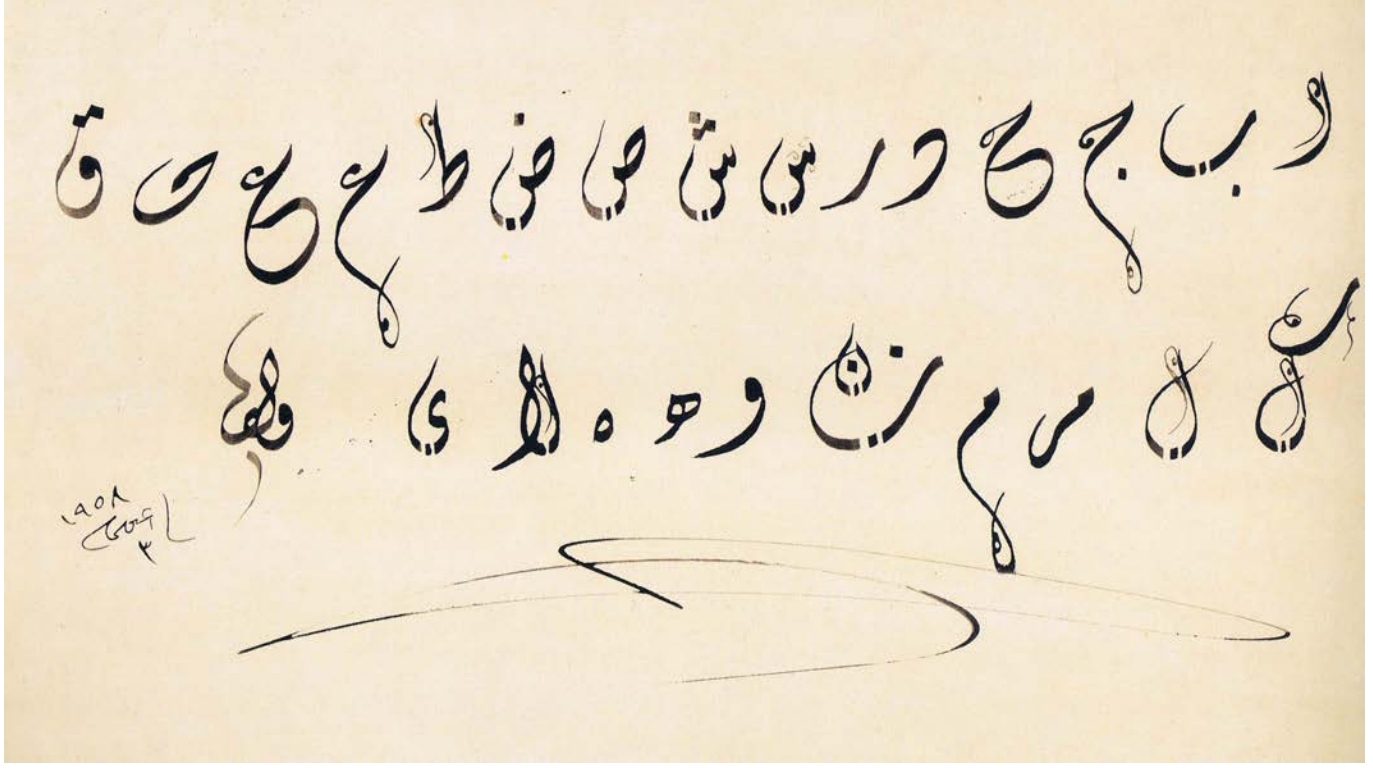 ا ب ج ح د ر س ش ص ض ط ع ع ف ق
ك ل م م ن و ه ه لا ي
١٩٥٨